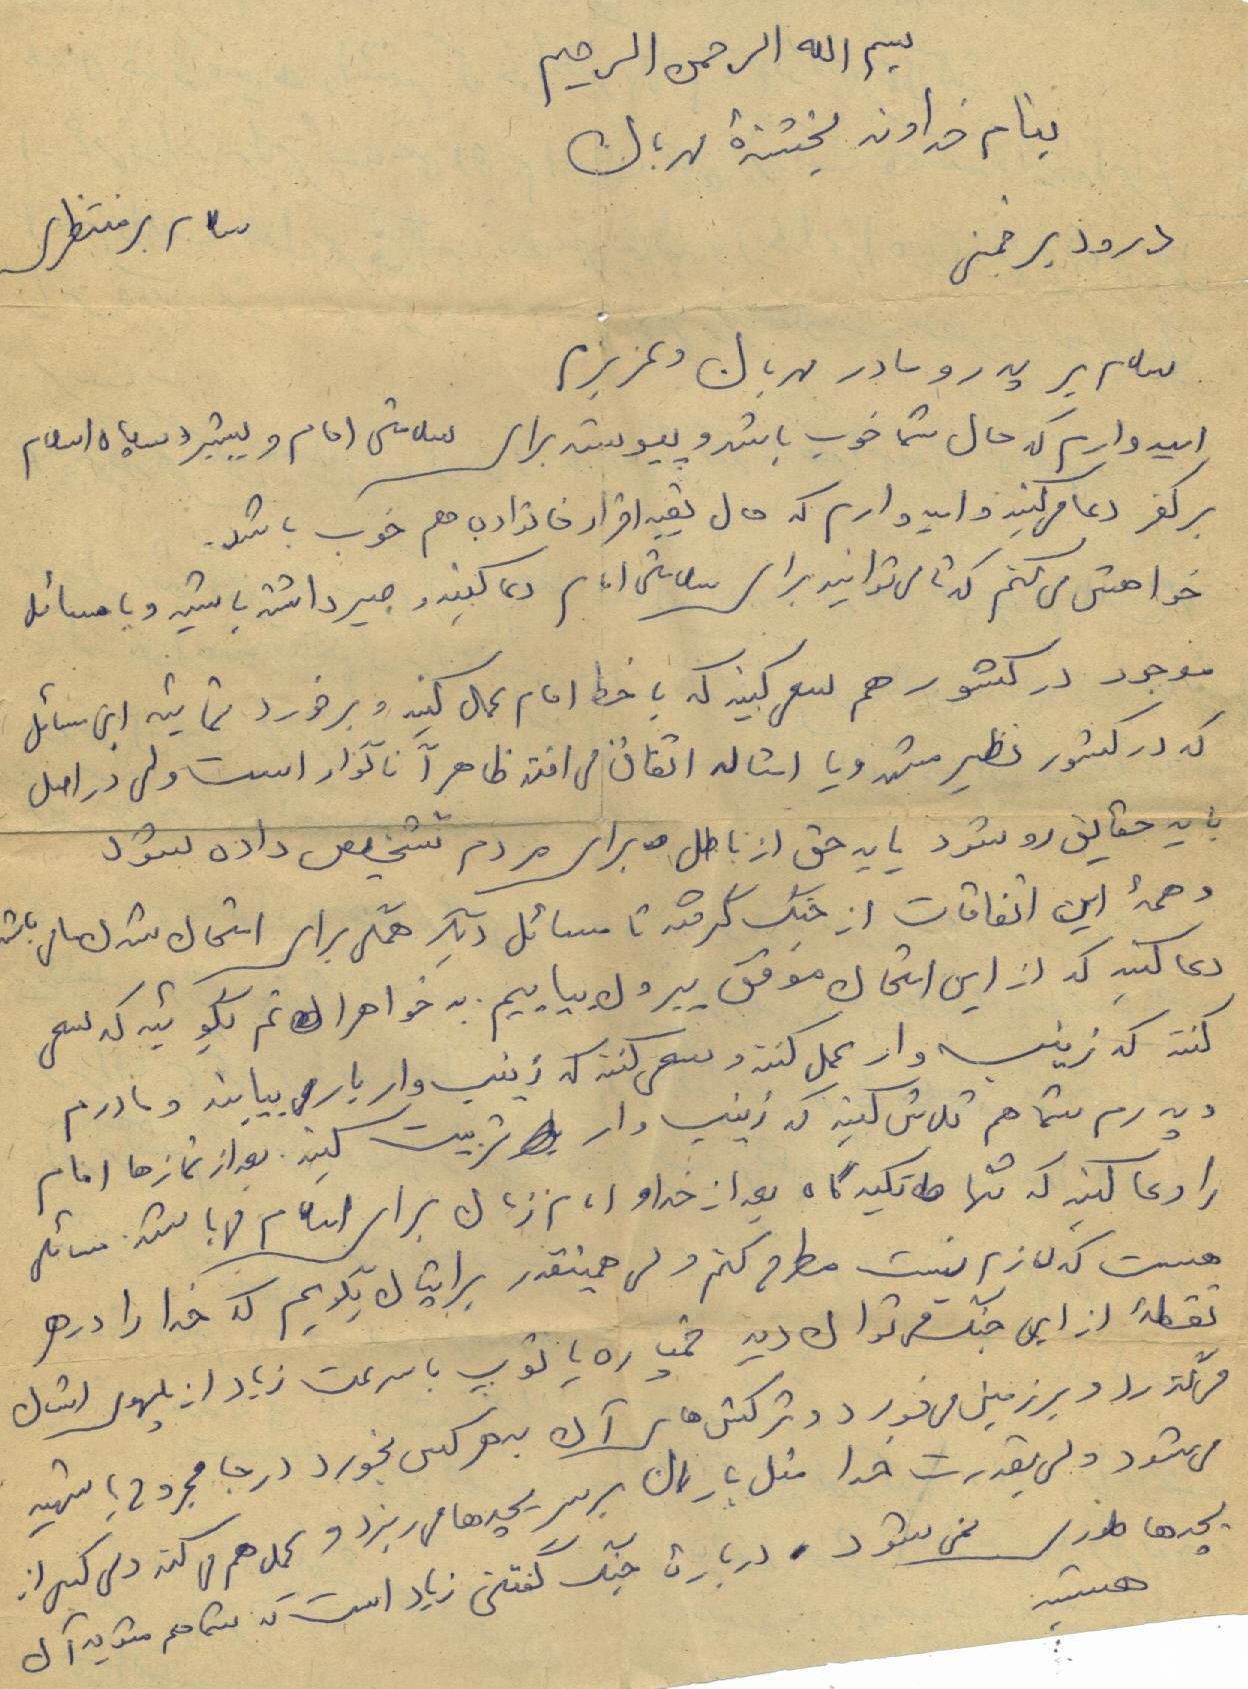 بسم الله الرحمن الرحیم
بنام خداوند بخشندهٔ مهربان
درود بر خمینی سلام بر منتظری
سلام بر پدر و مادر مهربان و عزیزم
امیدوارم که حال شما خوب باشد و پیوسته برای سلامتی امام و پیشبرد سپاه اسلام
بر کفر دعا می‌کنید و امیدوارم که حال بقیه افراد خانواده هم خوب باشد.
خواهش می‌کنم که تا می‌توانید برای سلامتی امام دعا کنید و صبر داشته باشید و با مسائل
موجود در کشور هم سعی کنید که با خط امام عمل کنید و برخورد نمائید این مسائل
که در کشور نظیر و یا امثاله اتفاق می‌افتد ظاهراً ناگوار است ولی در اصل
باید حقایق رو شود باید حق از باطل برای مردم تشخیص داده شود
و همهٔ این اتفاقات از جنگ گرفته تا مسائل دیگر همگی برای امتحان شدن ما می‌باشد
دعا کنید که از این امتحان موفق بیرون بیاییم. به خواهران تم بگوئید که سعی
کنند که زینب وار عمل کنند و سعی کنند که زینب وار بار بیایند و مادرم
و پدرم شما هم تلاش کنید که زینب وار تربیت کنید. بعد از نمازها امام
را دعا کنید که تنها تکیه گاه بعد از خدا و امام زمان برای اسلام می‌باشد. مسائلی
هست که لازم نیست مطرح کنم ولی همینقدر برایتان بگویم که خدا را در هر
نقطهٔ از این جنگ می‌توان دید خمپاره یا توپ با سرعت زیاد از پهلوی انسان
می‌گذرد و بر زمین می‌خورد و ترکش‌های آن به هر کس بخورد در جا مجروح یا شهید
می‌شود ولی بقدرت خدا مثل باران بر سر بچه‌ها می‌ریزد و عمل هم می‌کند ولی کسی از
بچه‌ها طوری نمی‌شود. دربارهٔ جنگ گفتنی زیاد است که شما هم شنونده آن
هستید